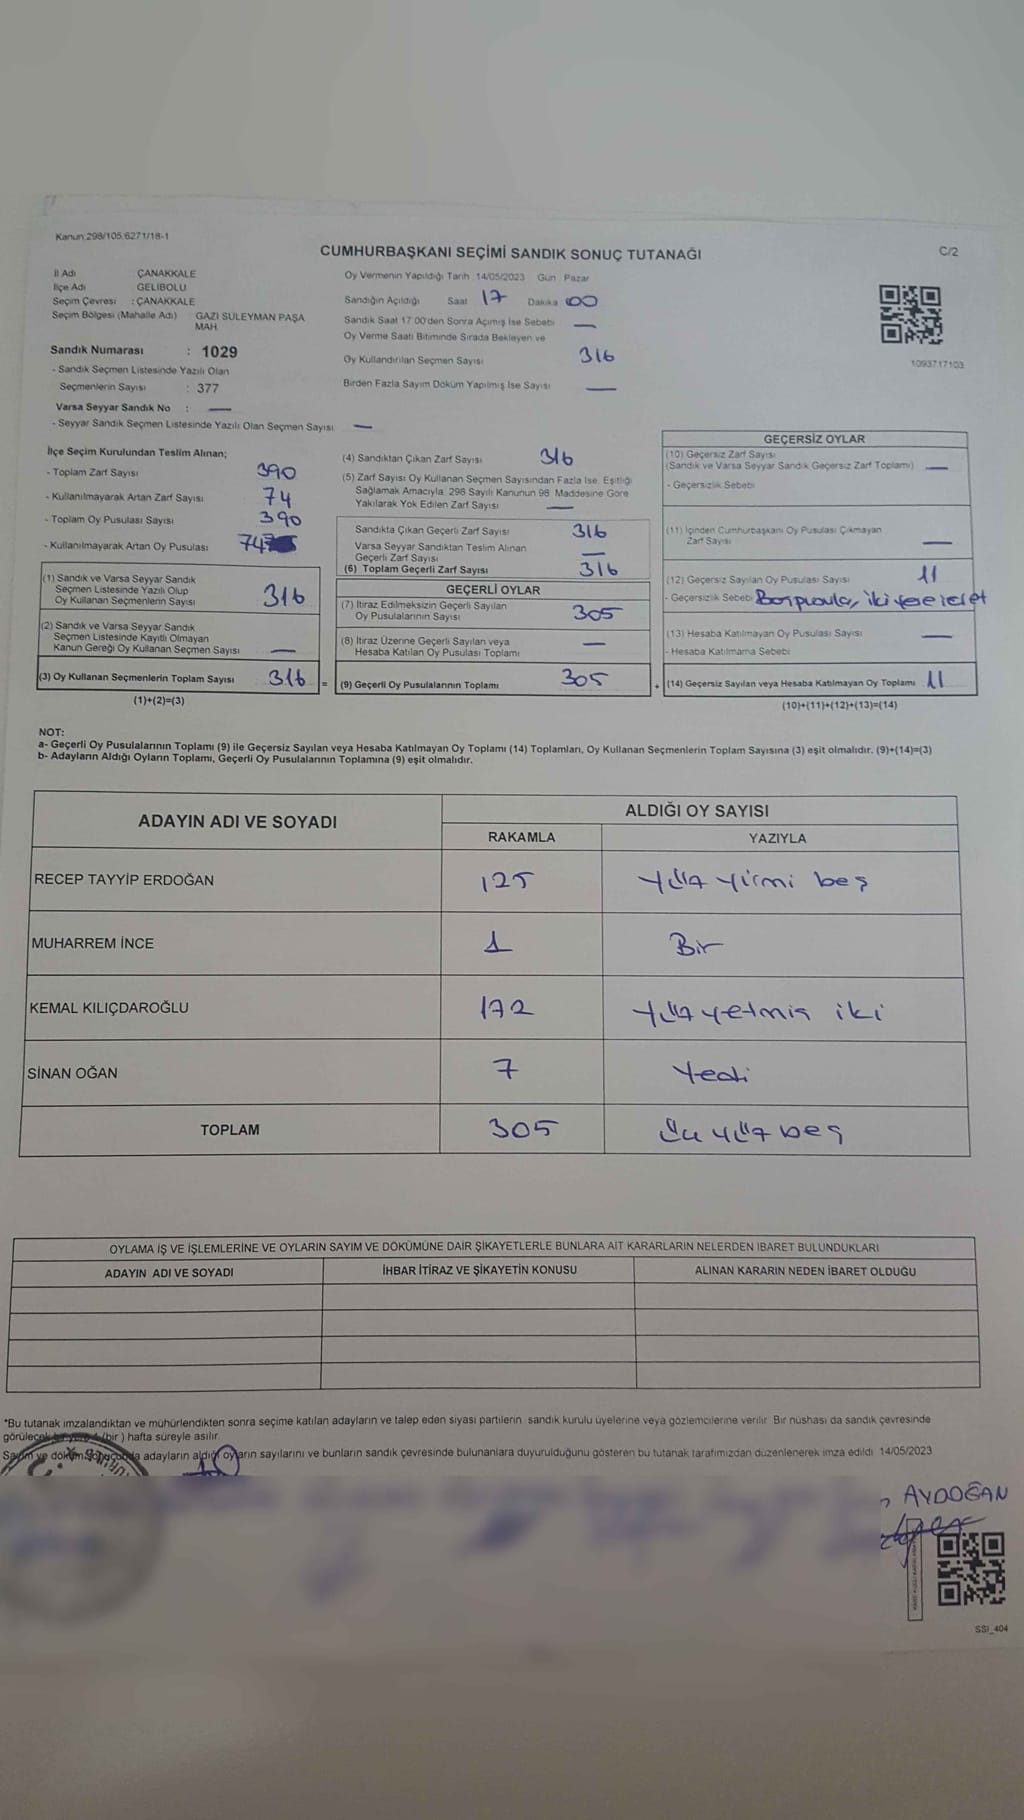 Kanun:298/105.6271/18-1
CUMHURBAŞKANI SEÇİMİ SANDIK SONUÇ TUTANAĞI
C/2
İl Adı : ÇANAKKALE
İlçe Adı : GELİBOLU
Seçim Çevresi : ÇANAKKALE
Seçim Bölgesi (Mahalle Adı) GAZİ SÜLEYMAN PAŞA
MAH.
Sandık Numarası : 1029
- Sandık Seçmen Listesinde Yazılı Olan
Seçmenlerin Sayısı : 377
Varsa Seyyar Sandık No : —
- Seyyar Sandık Seçmen Listesinde Yazılı Olan Seçmen Sayısı —
Oy Vermenin Yapıldığı Tarih : 14/05/2023 Gün : Pazar
Sandığın Açıldığı Saat 17 Dakika 00
Sandık Saat 17:00'den Sonra Açımış İse Sebebi —
Oy Verme Saati Bitiminde Sırada Bekleyen ve
Oy Kullandırılan Seçmen Sayısı 316
Birden Fazla Sayım Döküm Yapılmış İse Sayısı —
1093717103
İlçe Seçim Kurulundan Teslim Alınan;
- Toplam Zarf Sayısı 390
- Kullanılmayarak Artan Zarf Sayısı 74
- Toplam Oy Pusulası Sayısı 390
- Kullanılmayarak Artan Oy Pusulası 74
(1) Sandık ve Varsa Seyyar Sandık
Seçmen Listesinde Yazılı Olup
Oy Kullanan Seçmenlerin Sayısı 316
(2) Sandık ve Varsa Seyyar Sandık
Seçmen Listesinde Kayıtlı Olmayan
Kanun Gereği Oy Kullanan Seçmen Sayısı —
(3) Oy Kullanan Seçmenlerin Toplam Sayısı 316 =
(1)+(2)=(3)
(4) Sandıktan Çıkan Zarf Sayısı 316
(5) Zarf Sayısı Oy Kullanan Seçmen Sayısından Fazla İse, Eşitliği
Sağlamak Amacıyla, 298 Sayılı Kanunun 98. Maddesine Göre
Yakılarak Yok Edilen Zarf Sayısı —
Sandıkta Çıkan Geçerli Zarf Sayısı 316
Varsa Seyyar Sandıktan Teslim Alınan
Geçerli Zarf Sayısı —
(6) Toplam Geçerli Zarf Sayısı 316
GEÇERLİ OYLAR
(7) İtiraz Edilmeksizin Geçerli Sayılan
Oy Pusulalarının Sayısı 305
(8) İtiraz Üzerine Geçerli Sayılan veya
Hesaba Katılan Oy Pusulası Toplamı —
(9) Geçerli Oy Pusulalarının Toplamı 305 +
GEÇERSİZ OYLAR
(10) Geçersiz Zarf Sayısı
(Sandık ve Varsa Seyyar Sandık Geçersiz Zarf Toplamı) —
- Geçersizlik Sebebi
(11) İçinden Cumhurbaşkanı Oy Pusulası Çıkmayan
Zarf Sayısı —
(12) Geçersiz Sayılan Oy Pusulası Sayısı 11
- Geçersizlik Sebebi iki yere
(13) Hesaba Katılmayan Oy Pusulası Sayısı —
- Hesaba Katılmama Sebebi
(14) Geçersiz Sayılan veya Hesaba Katılmayan Oy Toplamı 11
(10)+(11)+(12)+(13)=(14)
NOT:
a- Geçerli Oy Pusulalarının Toplamı (9) ile Geçersiz Sayılan veya Hesaba Katılmayan Oy Toplamı (14) Toplamları, Oy Kullanan Seçmenlerin Toplam Sayısına (3) eşit olmalıdır. (9)+(14)=(3)
b- Adayların Aldığı Oyların Toplamı, Geçerli Oy Pusulalarının Toplamına (9) eşit olmalıdır.
ADAYIN ADI VE SOYADI ALDIĞI OY SAYISI
RAKAMLA YAZIYLA
RECEP TAYYİP ERDOĞAN 125 Yüz yirmi beş
MUHARREM İNCE 1 Bir
KEMAL KILIÇDAROĞLU 172 Yüz yetmiş iki
SİNAN OĞAN 7 Yedi
TOPLAM 305 üç yüz beş
OYLAMA İŞ VE İŞLEMLERİNE VE OYLARIN SAYIM VE DÖKÜMÜNE DAİR ŞİKAYETLERLE BUNLARA AİT KARARLARIN NELERDEN İBARET BULUNDUKLARI
ADAYIN ADI VE SOYADI İHBAR İTİRAZ VE ŞİKAYETİN KONUSU ALINAN KARARIN NEDEN İBARET OLDUĞU
*Bu tutanak imzalandıktan ve mühürlendikten sonra seçime katılan adayların ve talep eden siyasi partilerin sandık kurulu üyelerine veya gözlemcilerine verilir. Bir nüshası da sandık çevresinde
görülecek bir yere 1 (bir) hafta süreyle asılır.
Sayım ve döküm sonucunda adayların aldığı oyların sayılarını ve bunların sandık çevresinde bulunanlara duyurulduğunu gösteren bu tutanak tarafımızdan düzenlenerek imza edildi. 14/05/2023
AYDOĞAN
SSI_404